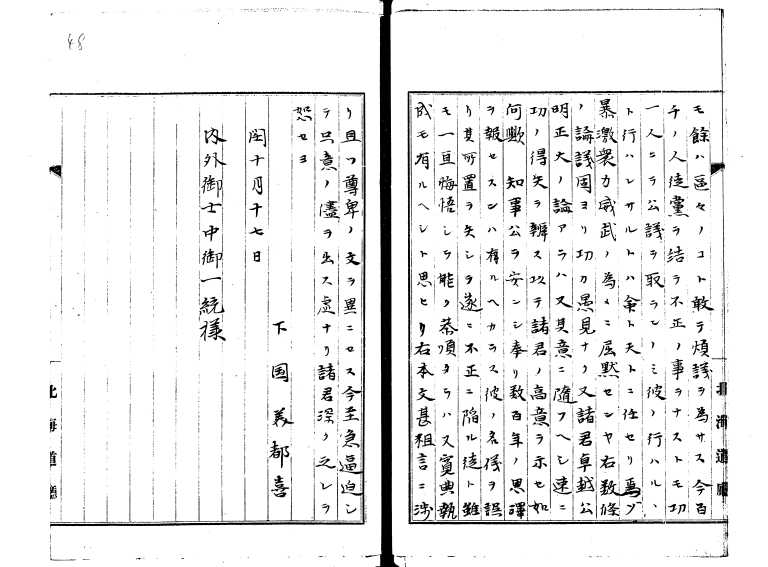 モ餘ハ區々ノコト敢テ煩議ヲ為サス今百
千ノ人徒黨ヲ結ヒ不正ノ事ヲナストモ功
一人ニテ公議ヲ取ランノミ彼ノ行ハル、
ト行ハレサルトハ命ト天トニ任セリ焉ソ
暴激衆力威武ノ為メニ屈黙センヤ右数條
ノ論議固ヨリ功カ愚見ナリ又諸君卓越公
明正大ノ論アラハ又其意ニ隨フヘシ速ニ
功ノ得失ヲ辨ス以テ諸君ノ高意ヲ示セ如
何歟 知事公ヲ安ンシ奉リ数百年ノ恩澤
ヲ報セスンハ有ルヘカラス彼ノ名儀ヲ誤
リ其所置ヲ失シテ遂ニ不正ニ陥ル徒ト雖
モ一旦悔悟シテ能ク恭順タラハ又寛典執
成モ有ルヘシト思ヒリ右本文甚粗言ニ渉
リ且ツ尊卑ノ文ヲ異ニセス今至急逼迫シ
テ只意ノ儘ヲ出ス處ナリ諸君深ク之レヲ
恕セヨ
閏十月十七日
下国義都喜
内外御士中御一統様
北海道廳
北海道廳
48